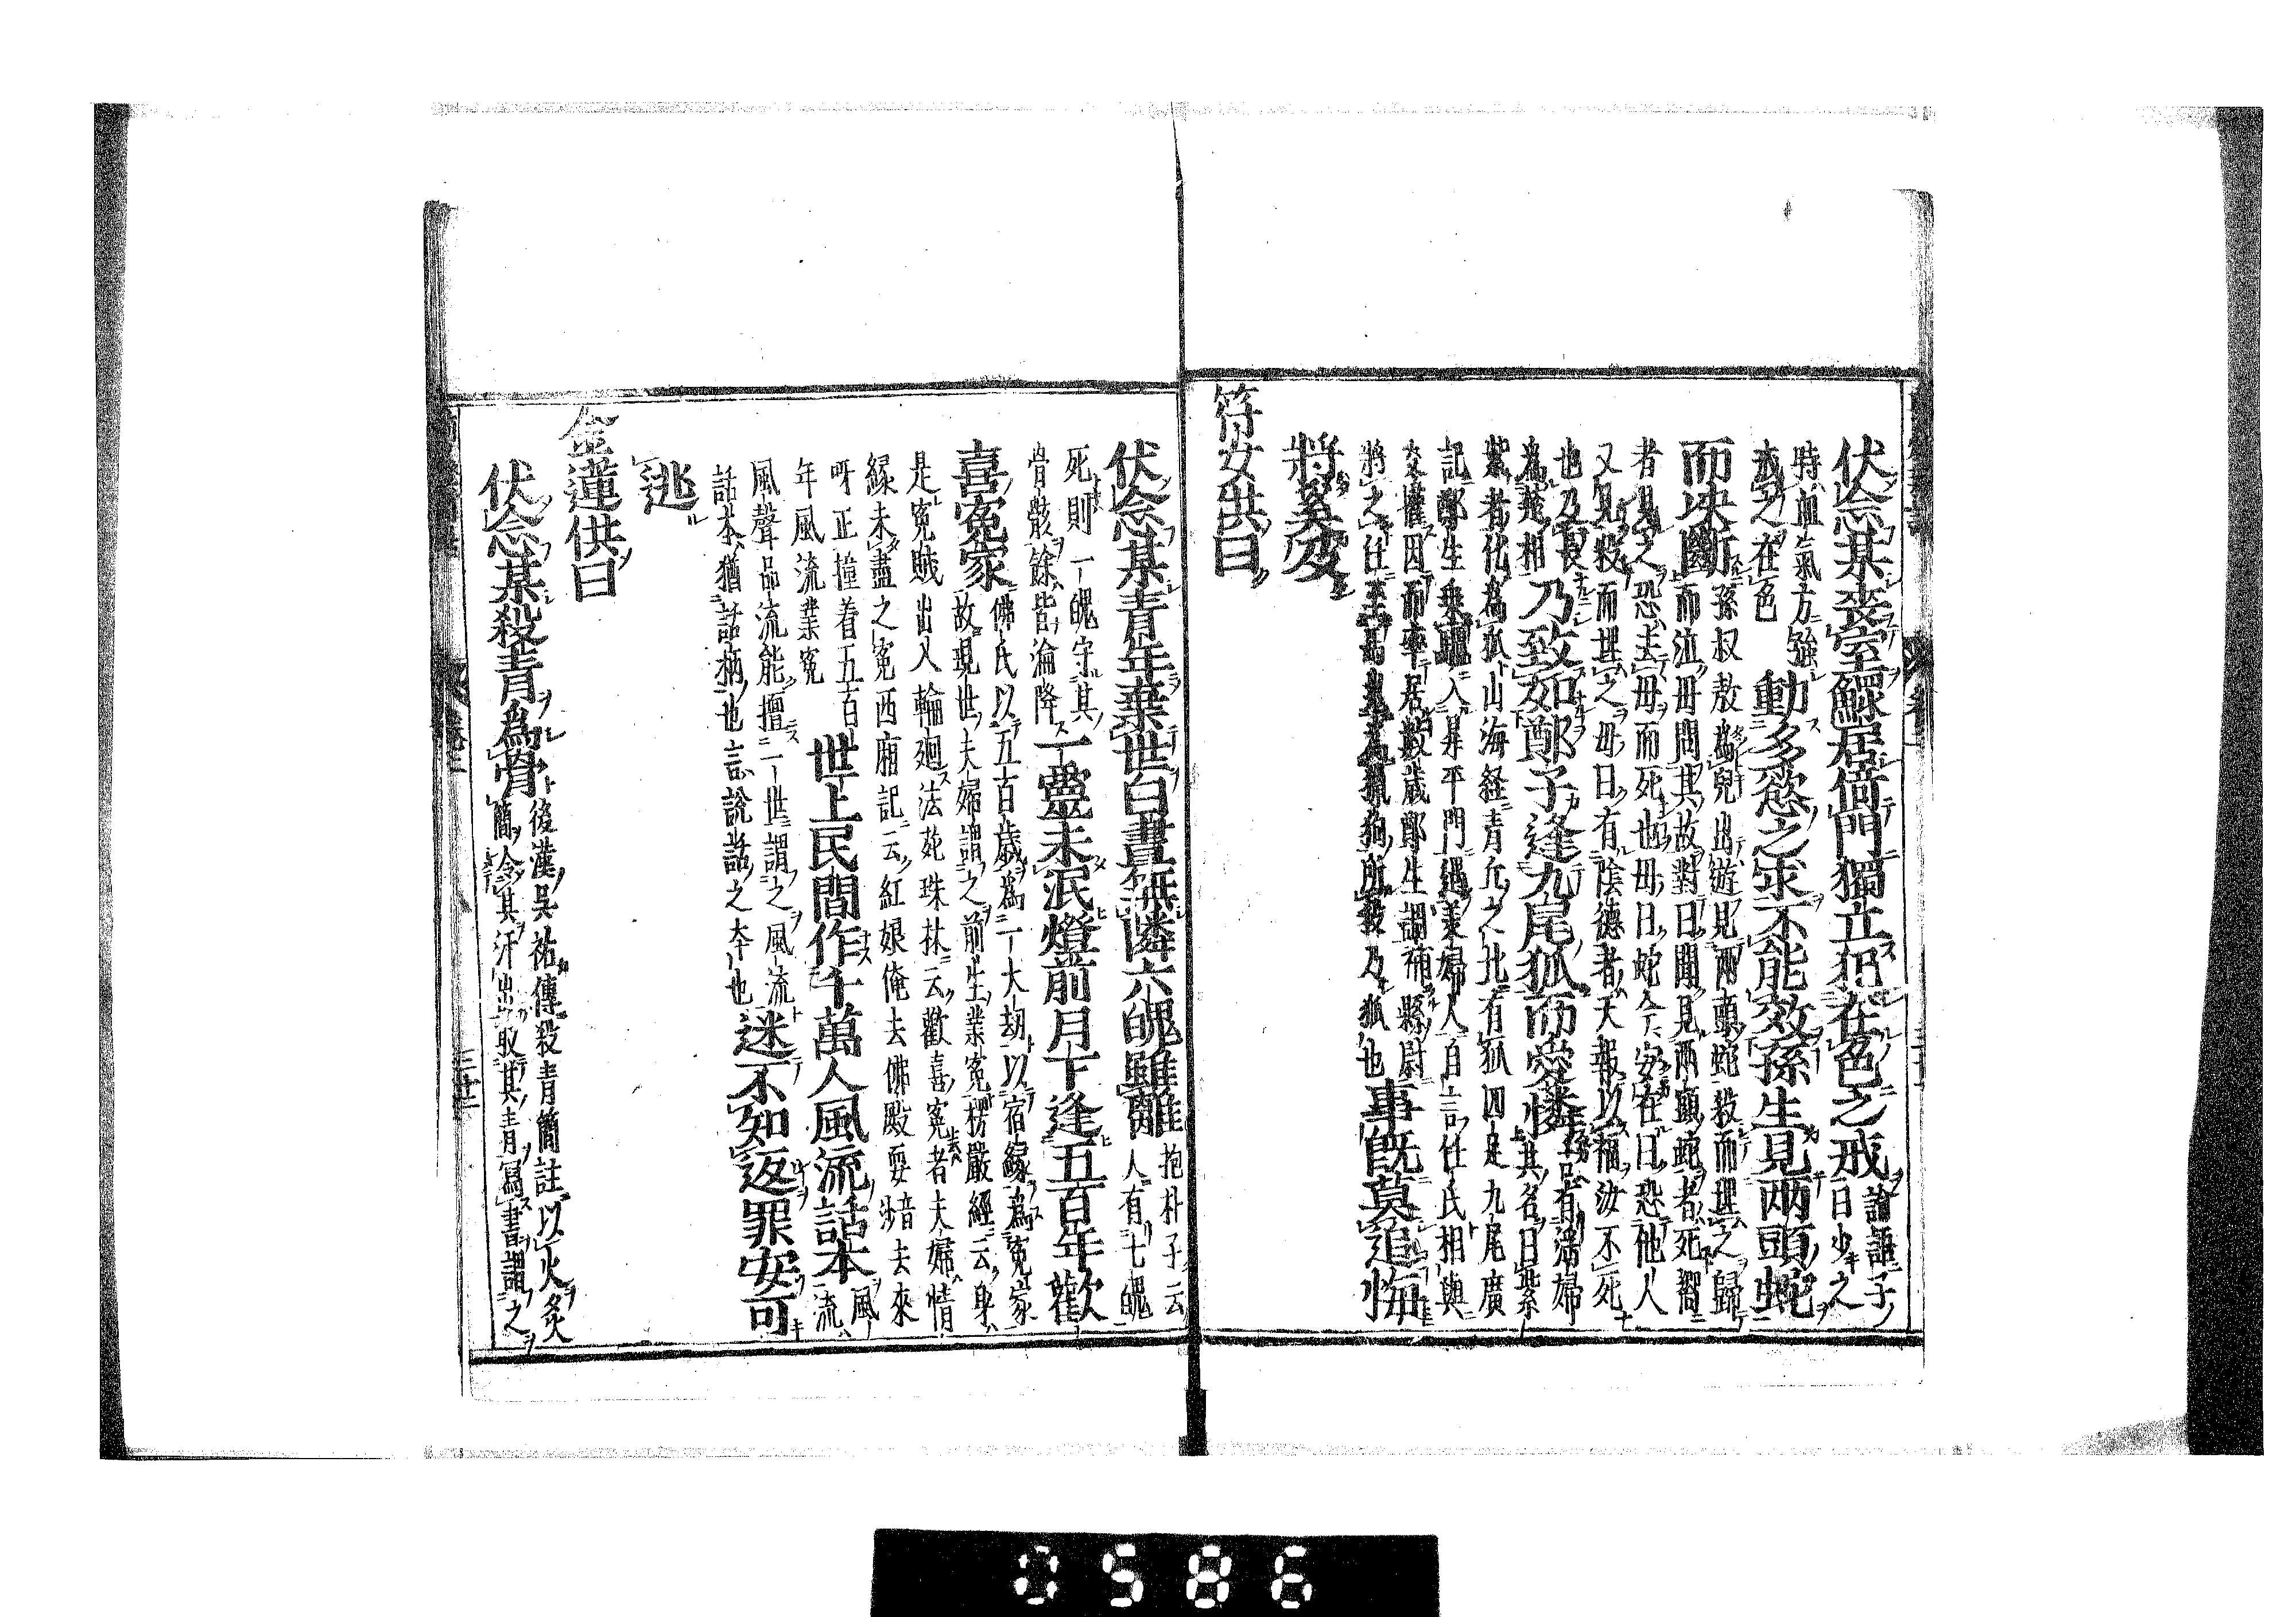 伏念某喪室鰥居倚門獨立犯在色之戒論語子
曰少之
時血氣方強
戒之在色動多慾之求不能效孫生見兩頭蛇
而決斷孫叔敖爲兒出遊見兩頭蛇殺而埋之歸
而泣母問其故對曰聞見兩頭蛇者死嚮
者見之恐去母而死也母曰蛇今安在曰恐他人
又見殺而埋之母曰有陰德者天報以福汝不死
也乃長
爲楚相乃致如鄭子逢九尾狐而愛憐有淫婦
其名曰紫
紫者化爲狐山海経青丘之北有狐四足九尾廣
記鄭生乗驢入昇平門遇美婦人自言任氏相與
交懽因而率居數歲鄭生調補縣尉
將之任至馬嵬爲獵狗所殺乃狐也事既莫追悔
將奚及
符女供曰
伏念某青年棄世白晝無隣六魄雖離抱朴子云
人有七魄
死則一魄守其
骨骸餘皆淪降一靈未泯燈前月下逢五百年歡
喜寃家佛氏以五百歲爲一大劫以宿緣爲寃家
故現世夫婦謂之前生業寃楞嚴經云身
是寃賊出入輪廻法苑珠林云歡喜寃者夫婦情
緣未盡之寃西廂記云紅娘俺去佛殿耍踏去來
呀正撞着五百
年風流業寃世上民間作千萬人風流話本風
流
風聲品流能擅一世謂之風流
話本猶話柄也言說話之本也迷不知返罪安可
逃
金蓮供曰
伏念某殺青爲骨後漢吳祐傳殺青簡註以火炙
簡令其汗出取其青寫書謂之